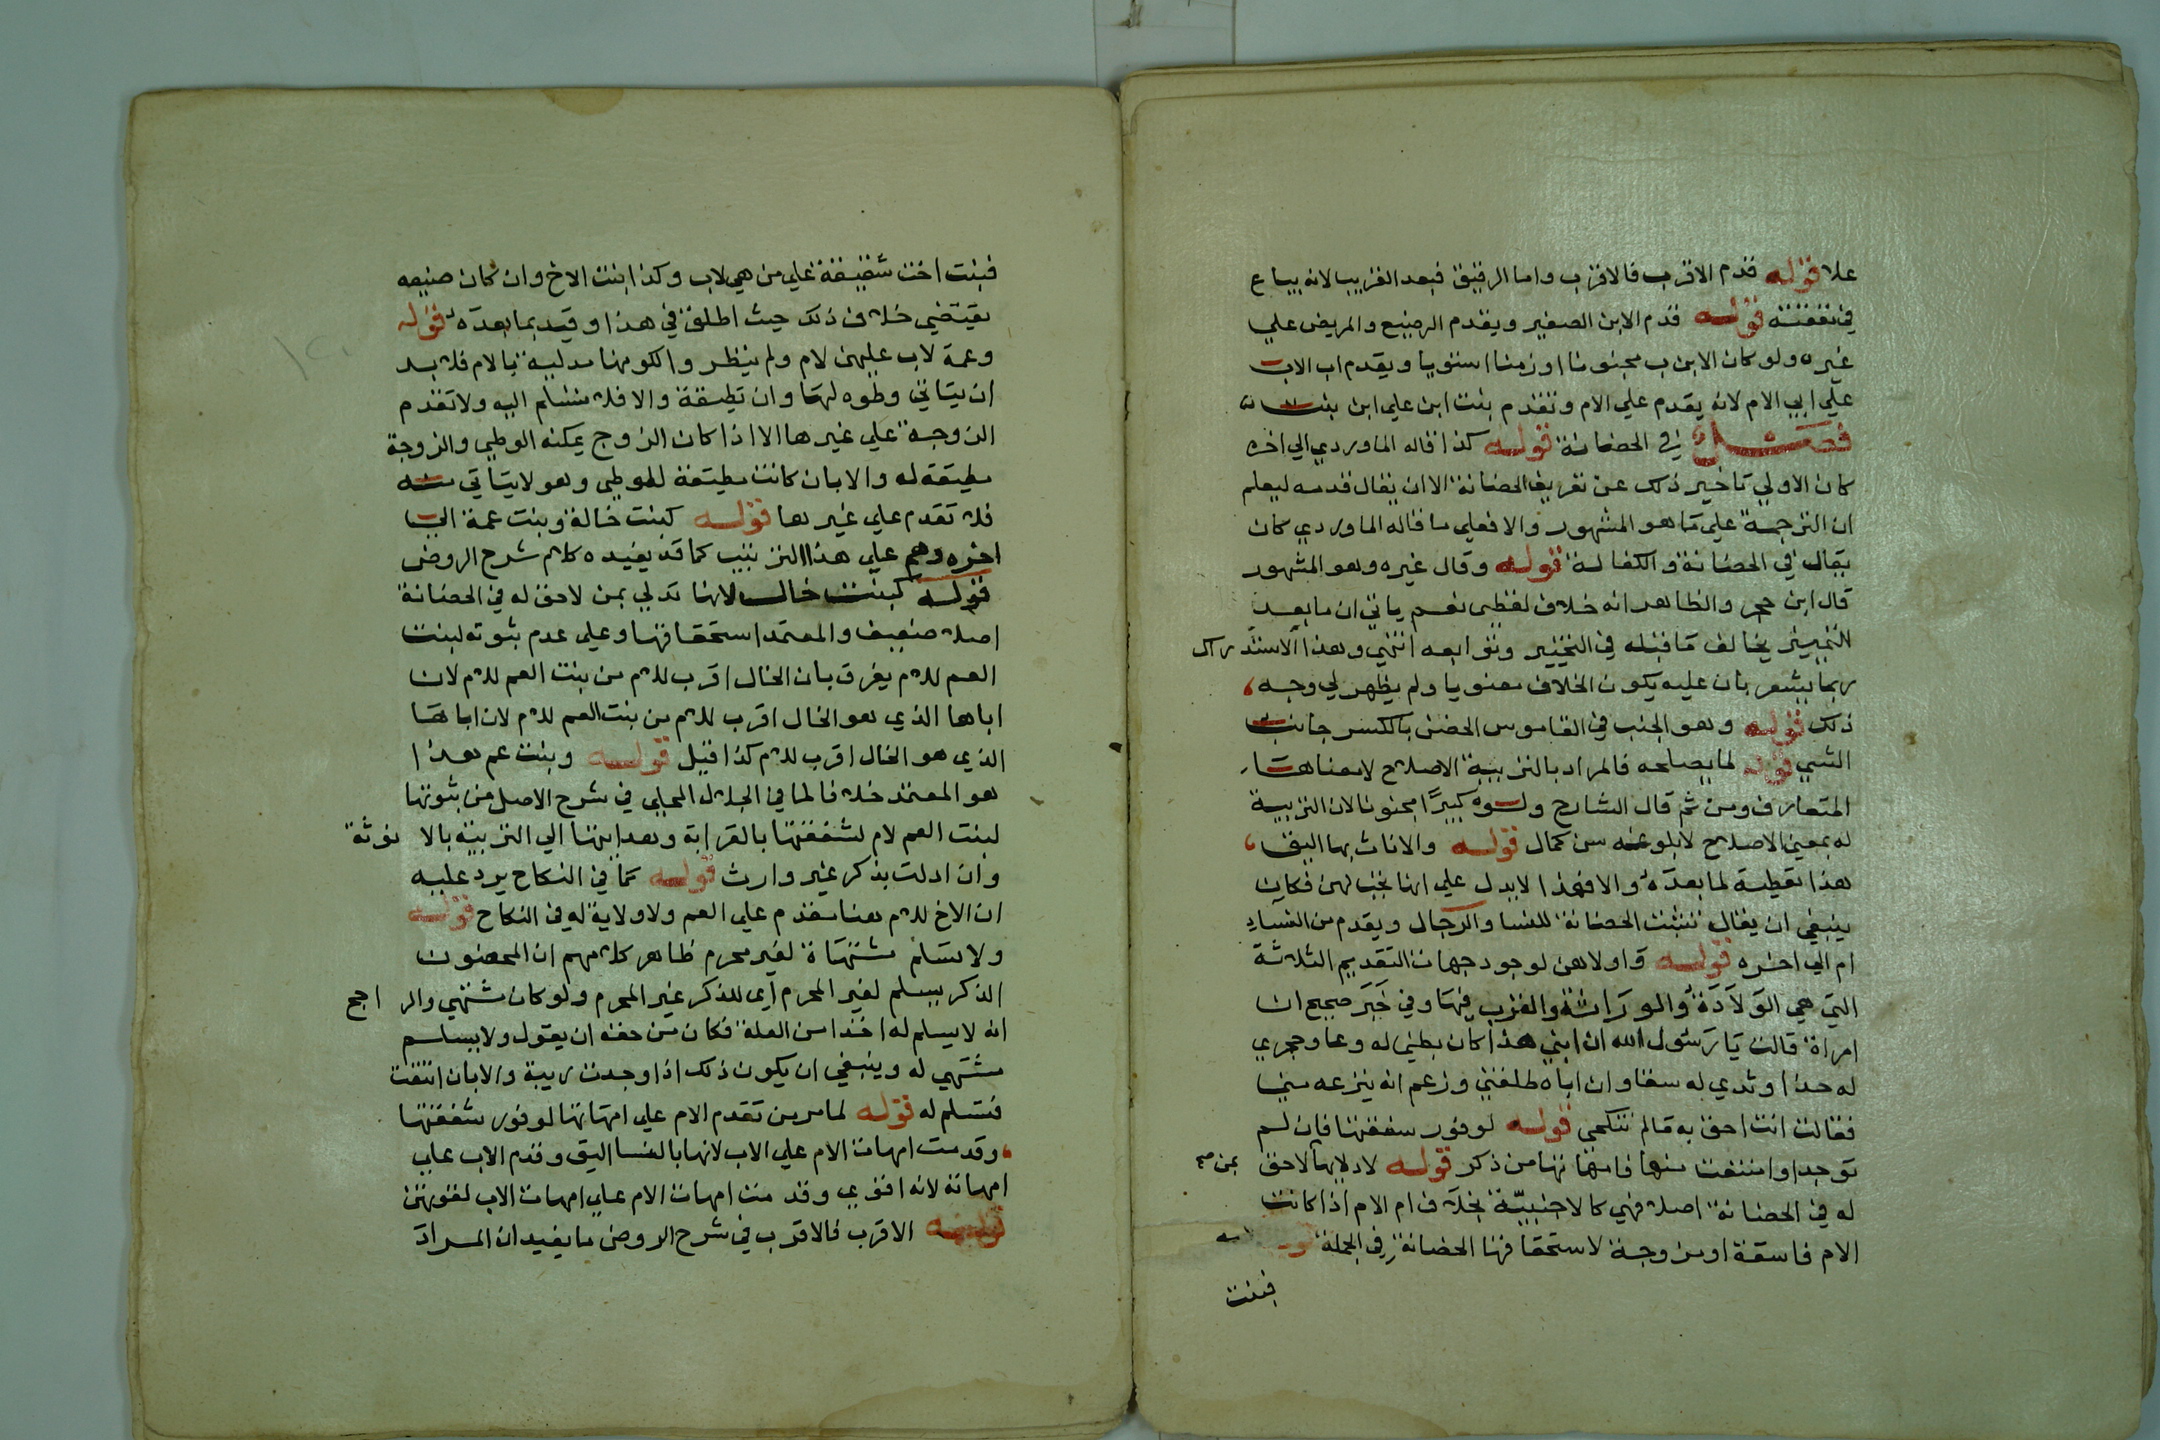 علا قوله قدم الاقرب فالاقرب واما الرقيق فبعد القريب لانه يباع
في نفقته قوله قدم الابن الصغير ويقدم الرضيع والمريض علي
غيره ولو كان الابن ب مجنونا او زمنا استويا ويقدم اب الاب
علي ابي الام لانه يقدم علي الام وتقدم بنت ابن علي ابن بنت
فصل في الحضانة قوله كذا قاله الماوردي الي اخره
كان الاولي تاخير ذلك عن تعريف الحضانة الا ان يقال قدمه ليعلم
ان الترجمة علي ما هو المشهور والا فعلي ما قاله الماوردي كان
يقال في الحضانة والكفالة قوله وقال غيره وهو المشهور
قال ابن حجر والظاهر انه خلاف لفظي نعم ياتي ان ما بعد
التمييز يخالف ما قبله في التخيير وتوابعه انتهي وهذا الاستدراك
ربما يشعر بان عليه يكون الخلاف معنويا ولم يظهر لي وجه
ذلك قوله وهو الجنب في القاموس الحضن بالكسر جانب
الشي قوله لما يصلحه فالمراد بالتربية الاصلاح لا معناها
المتعارف ومن ثم قال الشارح ولوه كبيرا مجنونا لان التربية
له بمعني الاصلاح لا بلوغه سن كمال قوله والاناث بها اليق
هذا تعطية لما بعده والا فهذا لا يدل علي انها تجب لهن فكان
ينبغي ان يقال تثبت الحضانة للنسا والرجال ويقدم من النساء
ام الي اخره قوله واولاهن لوجود جهات التقديم الثلاثة
التي هي الولادة والوراثة والقرب فيها وفي خبر صحيح ان
امراة قالت يا رسول الله ان ابني هذا كان بطني له وعا وحجري
له حوا وثدي له سقا وان اباه طلقني وزعم انه ينزعه مني
فقالت انت احق به مالم تنكحي قوله لوفور شفقتها فان لم
توجد او امتنعت منها فامها تها من ذكر قوله لادلايها لاحق بمن صح
له في الحضانة اصلا فهي كالاجنبية بخلاف ام الام اذا كانت
الام فاسقة او مزوجة لاستحقاقها الحضانة في الجملة
فبنت
فبنت اخت شقيقة علي من هي لاب وكذا بنت الاخ وان كان صنيعه
يقتضي خلاف ذلك حيث اطلق في هذا وقيد بما بعده قوله
وعمة لاب عليهن لام ولم ينظر والكونها مدلية بالام فلا بد
ان يتاتي وطوه لها وان تطيقه والا فلا تسلم اليه ولا تقدم
الزوجة علي غيرها الا اذا كان الزوج يمكنه الوطي والزوجة
مطيقة له والا بان كانت مطيقة للوطي وهو لا يتاتي منه
فلا تقدم علي غيرها قوله كبنت خالة وبنت عمة الي
اخره وهم علي هذا الترتيب كما قد يفيده كلام شرح الروض
قوله كبنت خال لانها تدلي بمن لا حق له في الحضانة
اصلا ضعيف والمعتمد استحقاقها وعلي عدم ثبوته لبنت
العم للام يفرق بان الخال اقرب للام من بنت العم للام لان
اباها الذي هو الخال اقرب للام من بنت العم للام لان اباها
الذي هو الخال اقرب للام كذا قيل قوله وبنت عم هذا
هو المعتمد خلافا لما في الجلال المحلي في شرح الاصل من ثبوتها
لبنت العم لام لشفقتها بالقرابة وهدايتها الي التربية بالا نوثة
وان ادلت بذكر غير وارث قوله كما في النكاح يرد عليه
ان الاخ للام هنا مقدم علي العم ولا ولاية له في النكاح قوله
ولا تسلم مشتهاة لغير محرم ظاهر كلامهم ان المحضون
الذكر يسلم لغير المحرم اي للذكر غير المحرم ولو كان مشتهي والر اجح
انه لا يسلم له اخذا من العلة فكان من حقه ان يقول ولا يسلم
مشتهي له وينبغي ان يكون ذلك اذا وجدت ريبة والا بان انتفت
فتسلم له قوله لما مر من تقدم الام علي امهاتها لوفور شفقتها
وقدمت امهات الام علي الاب لانها بالنسا اليق وقدم الاب علي
امهاته لانه اقوي وقدمت امهات الام علي امهات الاب لقوتهن
قوله الاقرب فالاقرب في شرح الروض ما يفيد ان المراد